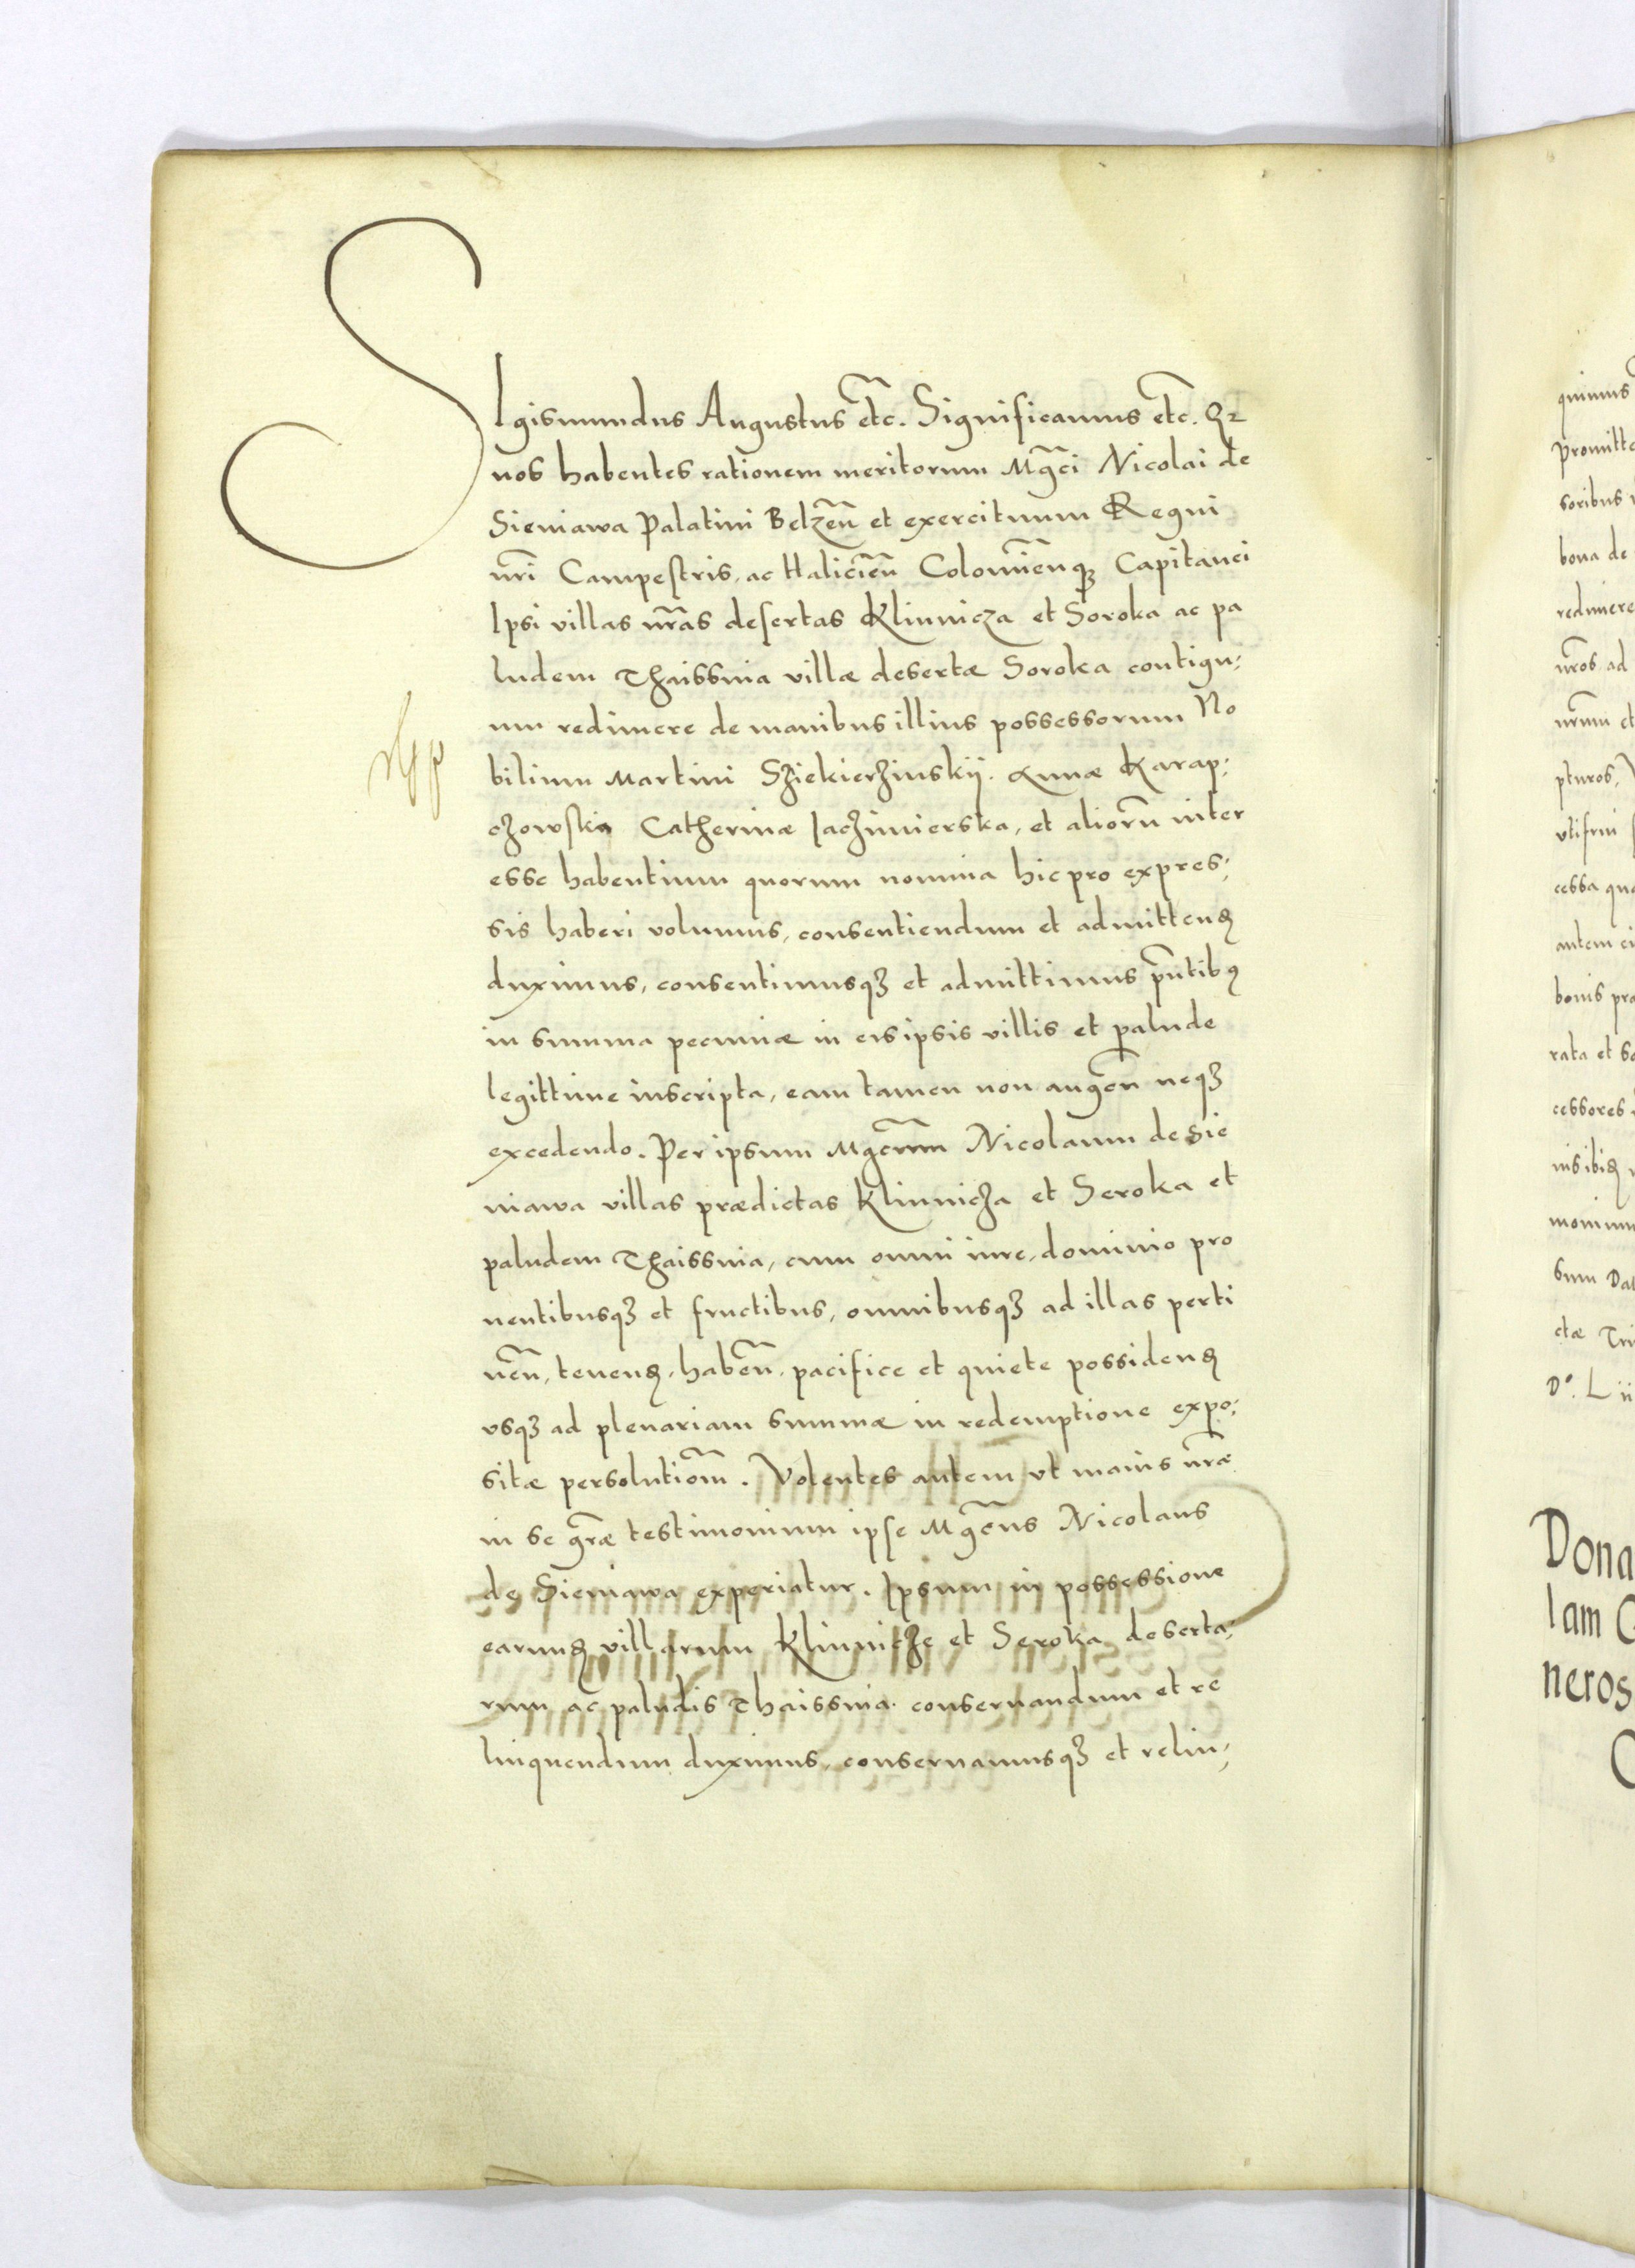 SIgismundus Augustus etc̃. Significamus etc̃. Qz
nos habentes rationem meritorum Mgc̃i Nicolai de
Sieniawa Palatini Belzeñ et exercituum Regni
nr̃i Campestris, ac Halicień Colomień qȝ Capitanei
Ipsi villas nr̃as desertas Klinnicza et Soroka ac pa
ludem Thaissnia villæ desertæ Soroka contigu:
um redimere de manibus illius possessorum No
bilium Martini Sziekierzinskij. Annæ Karap:
czowska Catherinæ Jaczimierska, et aliorũ inter
esse habentium quorum nomina hic pro expres:
sis haberi volumus, consentiendum et admittenꝫ
duximus, consentimusqȝ et admittimus pñtibꝰ
in summa pecuniæ in eis ipsis villis et palude
legittime inscripta, eam tamen non augeñ neqȝ
excedendo. Per ipsum Mgc̃um Nicolaum de Sie
niawa villas prædictas Klinnicza et Seroka et
paludem Thaissnia, cum omni iure, dominio pro
uentibusqȝ et fructibus, omnibusqȝ ad illas perti
neñ, tenenꝫ, habeñ, pacifice et quiete possidenꝫ
vsqȝ ad plenariam summæ in redemptione expo:
sitæ persolutiom̃. Volentes autem vt maius nr̃æ
in se gr̃æ testimonium ipse Mgc̃us Nicolaus
de Sieniawa experiatur. Ipsum in possessione
earunꝫ villarum Klinnicze et Seroka deserta:
rum ac paludis Thaissnia. conseruandum et re
linquendum duximus, conseruamusqȝ et relin:
quimus
promitt
soribus
bona de
redimere
nr̃os ad
nr̃um et
pturos,
vtifrui
cessa
autem
bonis
rata et
cessores
sum Dat
ctæ Tri
Dona
lam
neros